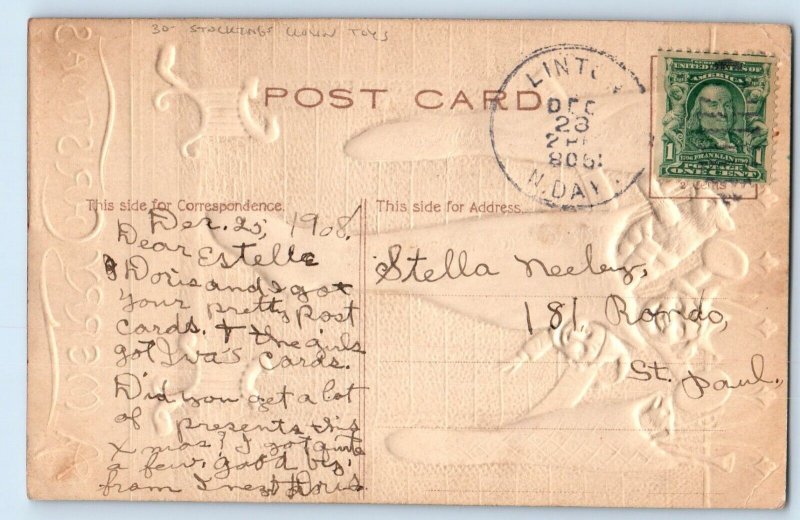 30- STOCKINGS CLOWN TOYS
POST CARD
LINTO
DEC
28
1908
N.DAK.
UNITED STATES OF
AMERICA
1706 FRANKLIN 1790
POSTAGE
1 ONE CENT 1
This side for Correspondence.
This side for Address.
Dec. 25, 1908.
Dear Estelle
Doris and I got
your pretty Post
cards. + the girls
got Iva's cards.
Did you get a lot
of presents this
Xmas? I got quite
a few. good bye,
from Inez + Doris
Stella Neeley,
181, Rondo,
St. Paul.